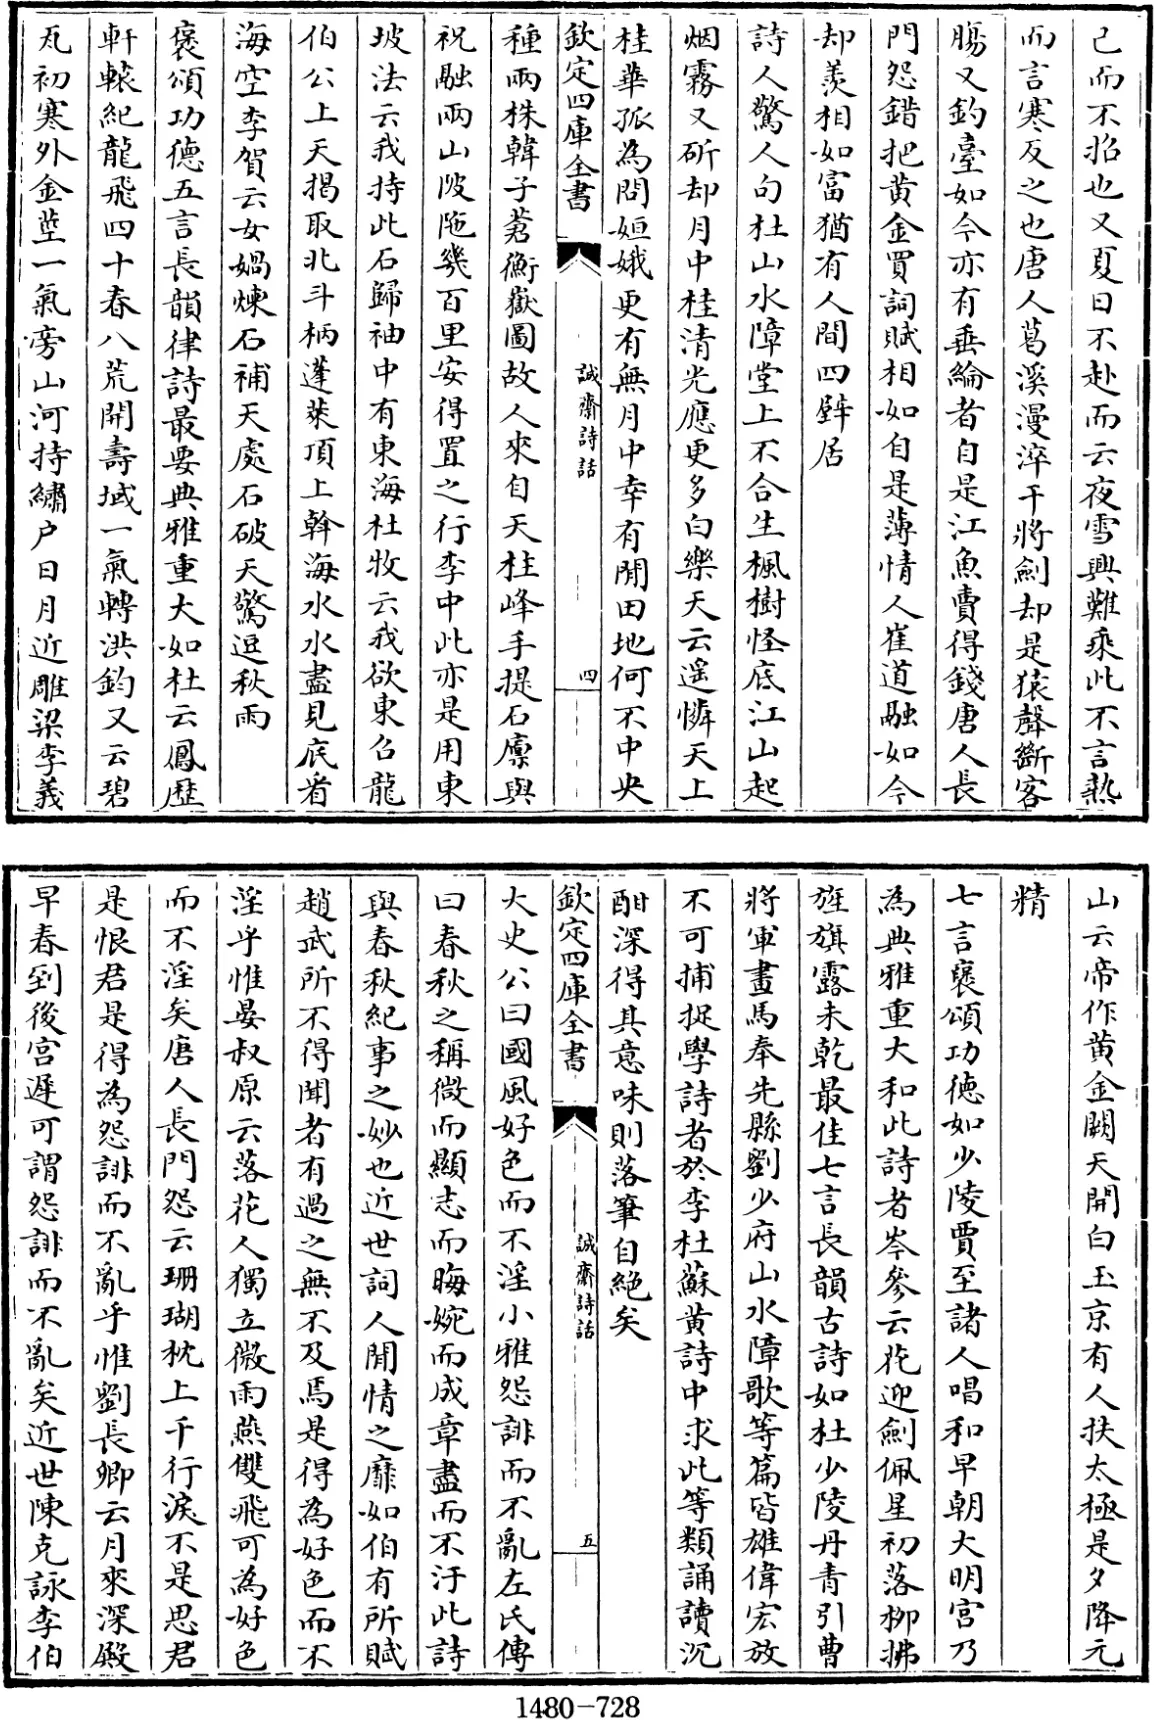 己而不招也又夏日不赴而云夜雪興難乘此不言熱
而言寒反之也唐人葛溪漫淬干將劍却是猿聲斷客
腸又釣臺如今亦有垂綸者自是江魚賣得錢唐人長
門怨錯把黄金買詞賦相如自是薄情人崔道融如今
却羨相如富猶有人間四壁居
詩人驚人句杜山水障堂上不合生楓樹怪底江山起
烟霧又斫却月中桂清光應更多白樂天云遥憐天上
桂華孤為問姮娥更有無月中幸有閒田地何不中央
欽定四庫全書
誠齋詩話
四
種兩株韓子蒼衡嶽圖故人來自天柱峰手提石廪與
祝融兩山陂陁幾百里安得置之行李中此亦是用東
坡法云我持此石歸袖中有東海杜牧云我欲東召龍
伯公上天揭取北斗柄蓬萊頂上斡海水水盡見底看
海空李賀云女媧煉石補天處石破天驚逗秋雨
褒頌功德五言長韻律詩最要典雅重大如杜云鳳歴
軒轅紀龍飛四十春八荒開壽域一氣轉洪鈞又云碧
瓦初寒外金莖一氣旁山河持繡户日月近雕梁李義
山云帝作黄金闕天開白玉京有人扶太極是夕降元
精
七言褒頌功德如少陵賈至諸人唱和早朝大明宫乃
為典雅重大和此詩者岑參云花迎劍佩星初落栁拂
旌旗露未乾最佳七言長韻古詩如杜少陵丹青引曹
將軍畫馬奉先縣劉少府山水障歌等篇皆雄偉宏放
不可捕捉學詩者於李杜蘇黄詩中求此等類誦讀沉
酣深得其意味則落筆自絶矣
欽定四庫全書
誠齋詩話
五
大史公曰國風好色而不淫小雅怨誹而不亂左氏傳
曰春秋之稱微而顯志而晦婉而成章盡而不汙此詩
與春秋紀事之妙也近世詞人閒情之靡如伯有所賦
趙武所不得聞者有過之無不及焉是得為好色而不
淫乎惟晏叔原云落花人獨立微雨燕雙飛可為好色
而不淫矣唐人長門怨云珊瑚枕上千行淚不是思君
是恨君是得為怨誹而不亂乎惟劉長卿云月來深殿
早春到後宫遲可謂怨誹而不亂矣近世陳克詠李伯
1480-728